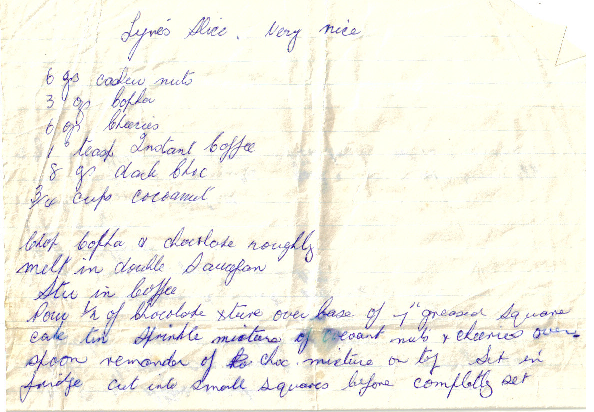 Lyne's Slice. Very nice
6 ozs cashew nuts
3 ozs Copha
6 ozs Cherries
1 teasp Instant Coffee
8 oz dark Choc
3/4 cups cocoanut
Chop Copha & chocolate roughly
melt in double Saucepan
Stir in Coffee
Pour 1/2 of Chocolate xture over base of 7" greased square
cake tin Sprinkle mixture of cocoant nuts & cherries over
spoon remander of choc mixture on top set in
fridge cut into small squares before completly set